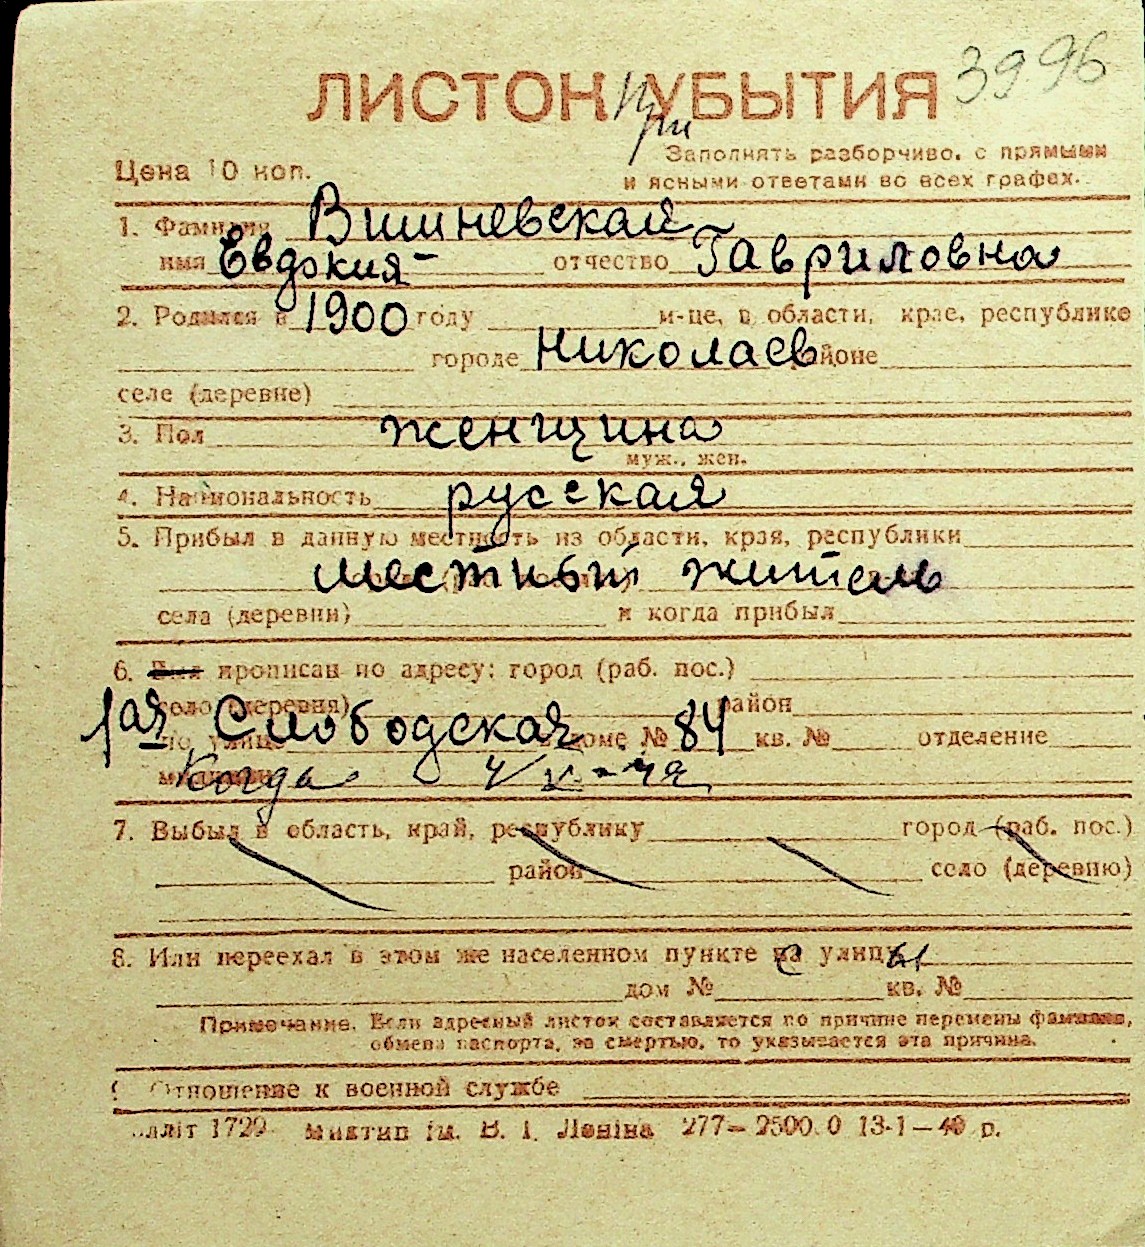 3996
ЛИСТОК УБЫТИЯ
При
Заполнять разборчиво, с прямыми
Цена 10 коп.
и ясными ответами во всех графах.
1. Фамилия Вишневская
имя Евдокия отчество Гавриловна
2. Родился в 1900 году и-це, в области, крае, республике
городе Николаев районе
селе (деревне)
3. Пол женщина
муж., жен.
4. Национальность русская
5. Прибыл в данную местность из области, края, республики
местный житель
села (деревни) и когда прибыл
6. Был прописан по адресу: город (раб. пос.)
село (деревня) район
1ая Слободская
по улице в доме № 84 кв. № отделение
милиции Когда
7. Выбыл в область, край, республику город (раб. пос.)
район село (деревню)
8. Или переехал в этом же населенном пункте с улицы
дом № кв. №
Примечание. Если адресный листок составляется по причине перемены фамилии,
обмена паспорта, за смертью, то указывается эта причина.
9 Отношение к военной службе
літ 1729 Миктип ім. В. І. Леніна 277—2500.0 13-1—40 р.